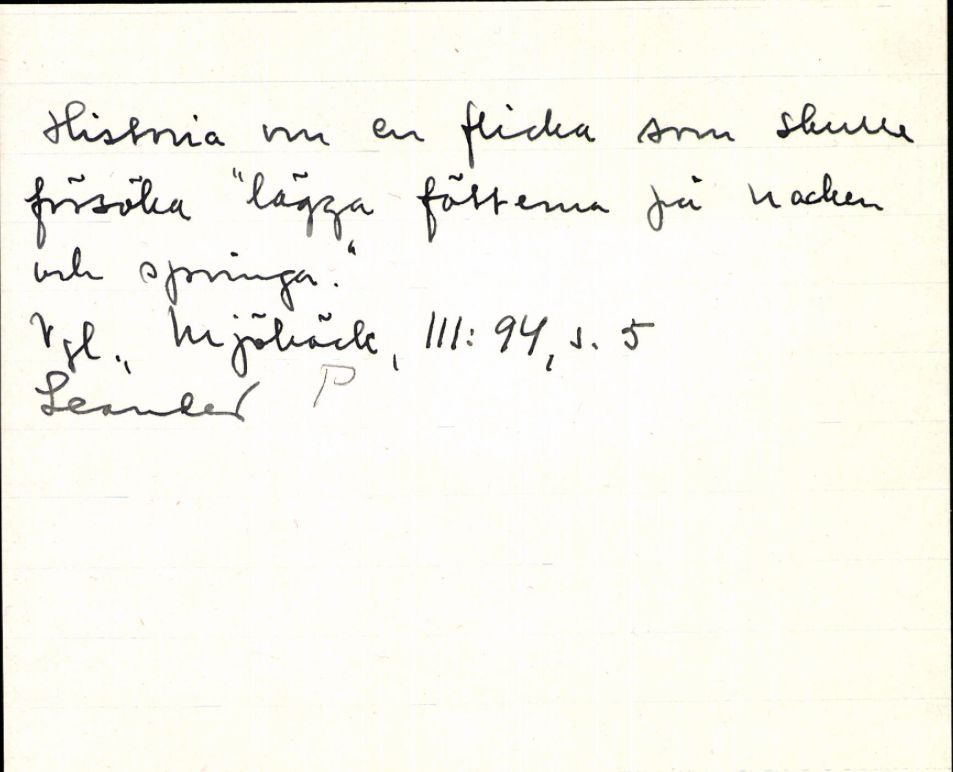 Historia om en flicka som skulle
försöka "lägga fötterna på nacken
och springa."
Vgl., Mjöbäck, III: 94, s. 5
Leander P